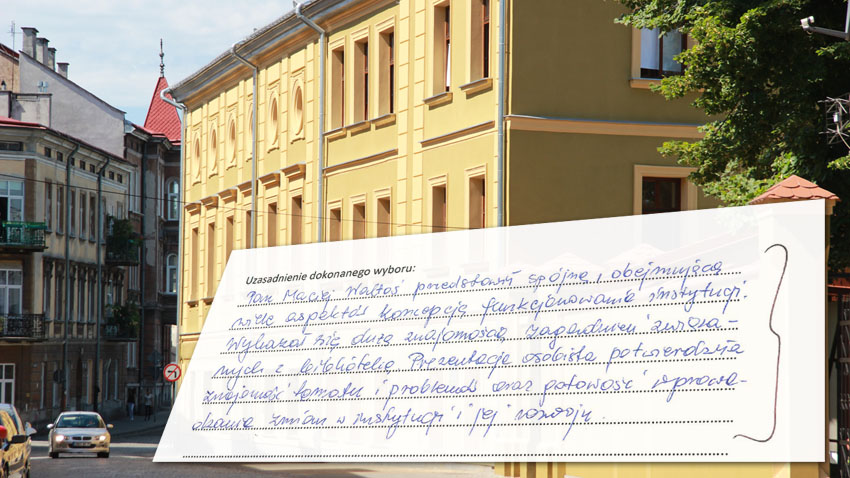 Uzasadnienie dokonanego wyboru:
Pan Maciej Waltoś przedstawił spójną i obejmującą
wiele aspektów koncepcję funkcjonowania instytucji.
Wykazał się dużą znajomością zagadnień związa-
nych z biblioteką. Prezentacja osobista potwierdziła
znajomość tematu i problemów oraz gotowość wprowa-
dzania zmian w instytucji i jej rozwoju.